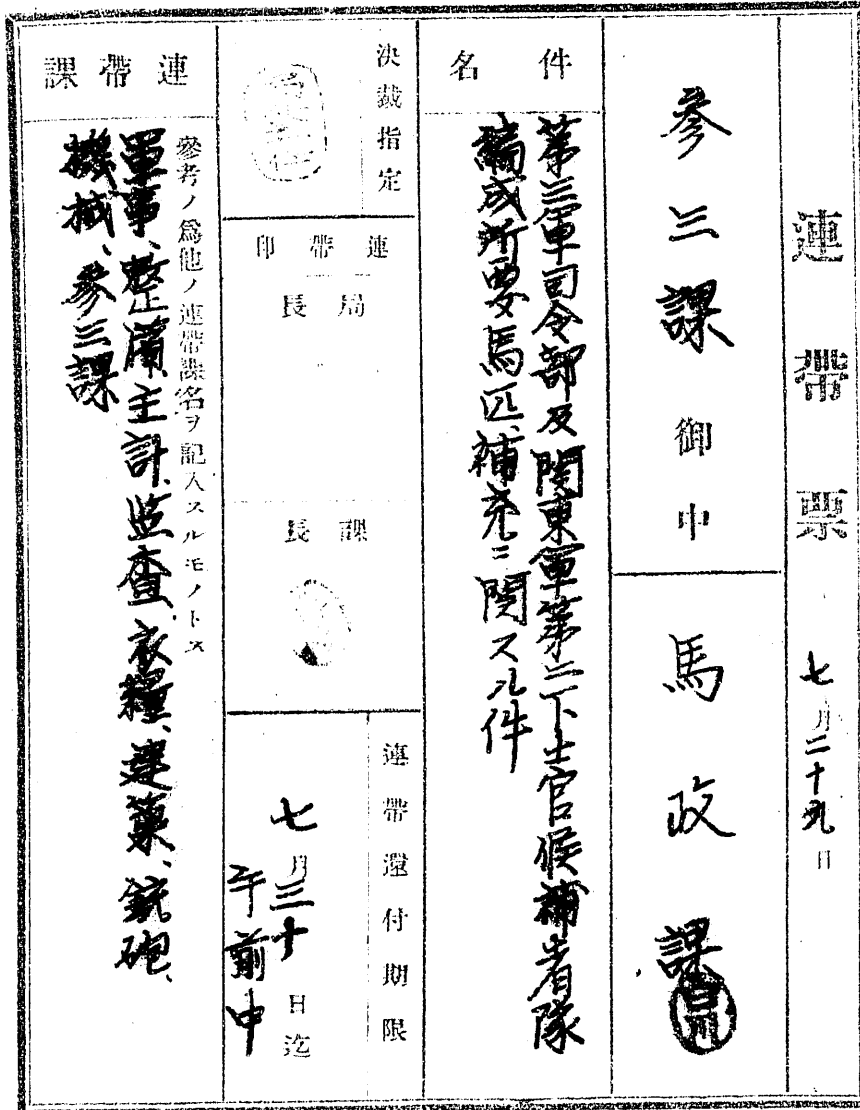 連帶票
七月二十九日
參三課御中
馬政課
件名
第三軍司令部及関東軍第二下士官候補者隊
編成所要馬匹補充ニ関スル件
決裁指定
連帶印
局長
課長
連帶還付期限
七月三十日迄
午前中
連帶課
參考ノ爲他ノ連帶課名ヲ記入スルモノトス
軍事、整備、主計、監査、衣糧、建築、銃砲、
機械、參三課